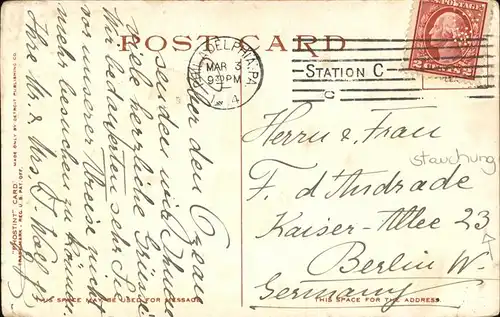 POST CARD
PHILADELPHIA, PA
MAR 3
9 PM
STATION C
C
2 CENTS 2
Über den Ozean
senden wir Ihnen
viele herzliche Grüsse
Wir bedauerten sehr Sie
vor unserer Abreise nicht
mehr besuchen zu können.
Ihre Mr. & Mrs.
Herrn & Frau
stauchung
F. d'Andrade
Kaiser-Allee 23
Berlin W.
Germany
"PHOSTINT" CARD MADE ONLY BY DETROIT PUBLISHING CO.
TRADE MARK - REG. U.S. PAT. OFF.
THIS SPACE MAY BE USED FOR MESSAGE
THIS SPACE FOR THE ADDRESS